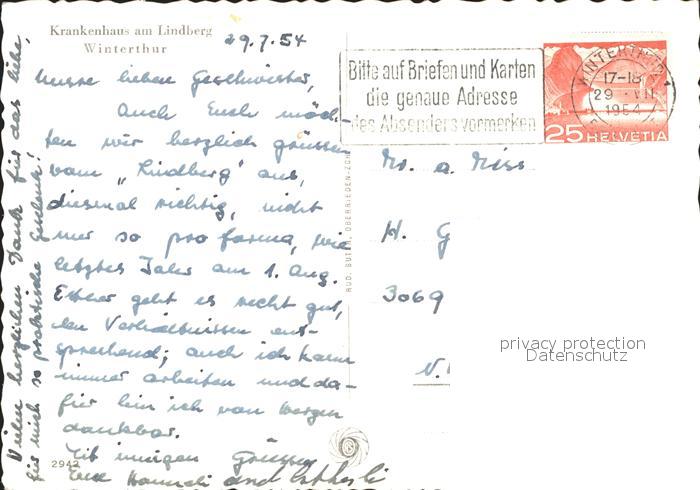 Krankenhaus am Lindberg
Winterthur
29.7.54
Unsere lieben Geschwister,
Auch Euch möch-
ten wir herzlich grüssen
vom „Lindberg" aus,
diesmal richtig, nicht
nur so pro forma, wie
letztes Jahr am 1. Aug.
Esther geht es recht gut,
den Verhältnissen ent-
sprechend; auch ich kann
immer arbeiten und da-
für bin ich von Herzen
dankbar.
Mit innigen Grüssen
Eure Hanneli and Estherli
Vielen herzlichen Dank für das liebe,
für mich so praktische Geschenk!
2942
RUD. SUTER, OBERRIEDEN-ZCH
Bitte auf Briefen und Karten
die genaue Adresse
des Absenders vormerken
WINTERTHUR 1
17-18
29.VII
1954
25 HELVETIA
Mr. a. Miss
H. G
3069
N.
privacy protection
Datenschutz